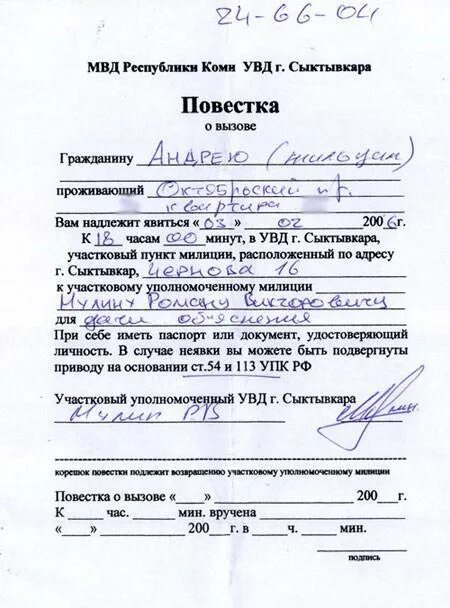 24-66-04
МВД Республики Коми УВД г. Сыктывкара
Повестка
о вызове
Гражданину Андрею (жильцам)
проживающий Октябрьский п-т.
квартира
Вам надлежит явиться «03» 02 2006г.
К 18 часам 00 минут, в УВД г. Сыктывкара,
участковый пункт милиции, расположенный по адресу
г. Сыктывкар, Чернова 16
к участковому уполномоченному милиции
Мулину Роману Викторовичу
для дачи объяснения
При себе иметь паспорт или документ, удостоверяющий
личность. В случае неявки вы можете быть подвергнуты
приводу на основании ст.54 и 113 УПК РФ
Участковый уполномоченный УВД г. Сыктывкара
Мулин РВ
корешок повестки подлежит возвращению участковому уполномоченному милиции
Повестка о вызове «___» 200___г.
К ____ час. ____ мин. вручена
«___» 200___г. в ___ч. ____ мин.
подпись